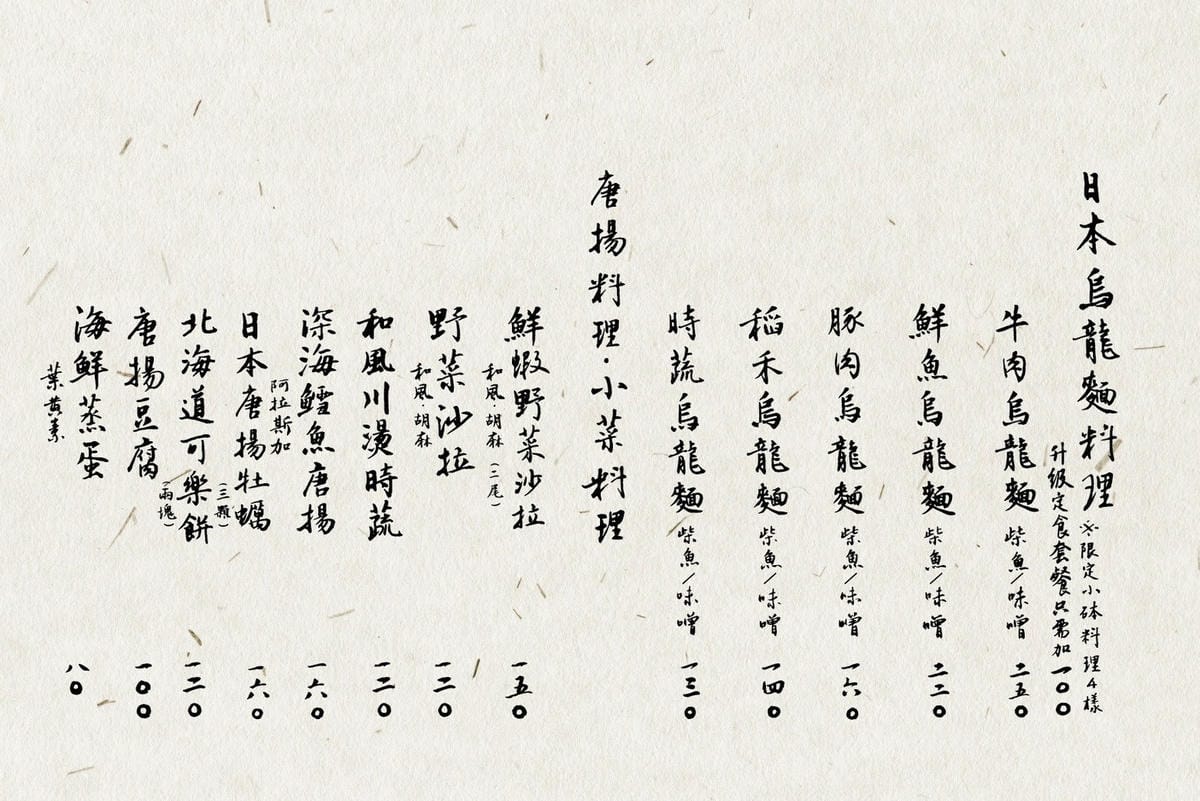 日本烏龍麵料理
※限定小砵料理4樣
升级定食套餐只需加一〇〇
牛肉烏龍麵 柴魚/味噌 二五〇
鮮魚烏龍麵 柴魚/味噌 二二〇
豚肉烏龍麵 柴魚/味噌 一六〇
稻禾烏龍麵 柴魚/味噌 一四〇
時蔬烏龍麵 柴魚/味噌 一三〇
唐揚料理·小菜料理
鮮蝦野菜沙拉 一五〇
和風胡麻(二尾)
野菜沙拉 一二〇
和風胡麻
和風川燙時蔬 一二〇
深海鱈魚唐揚 一六〇
阿拉斯加
日本唐揚牡蠣 一六〇
(三顆)
北海道可樂餅 一二〇
(兩塊)
唐揚豆腐 一〇〇
海鮮蒸蛋 八〇
葉黄素